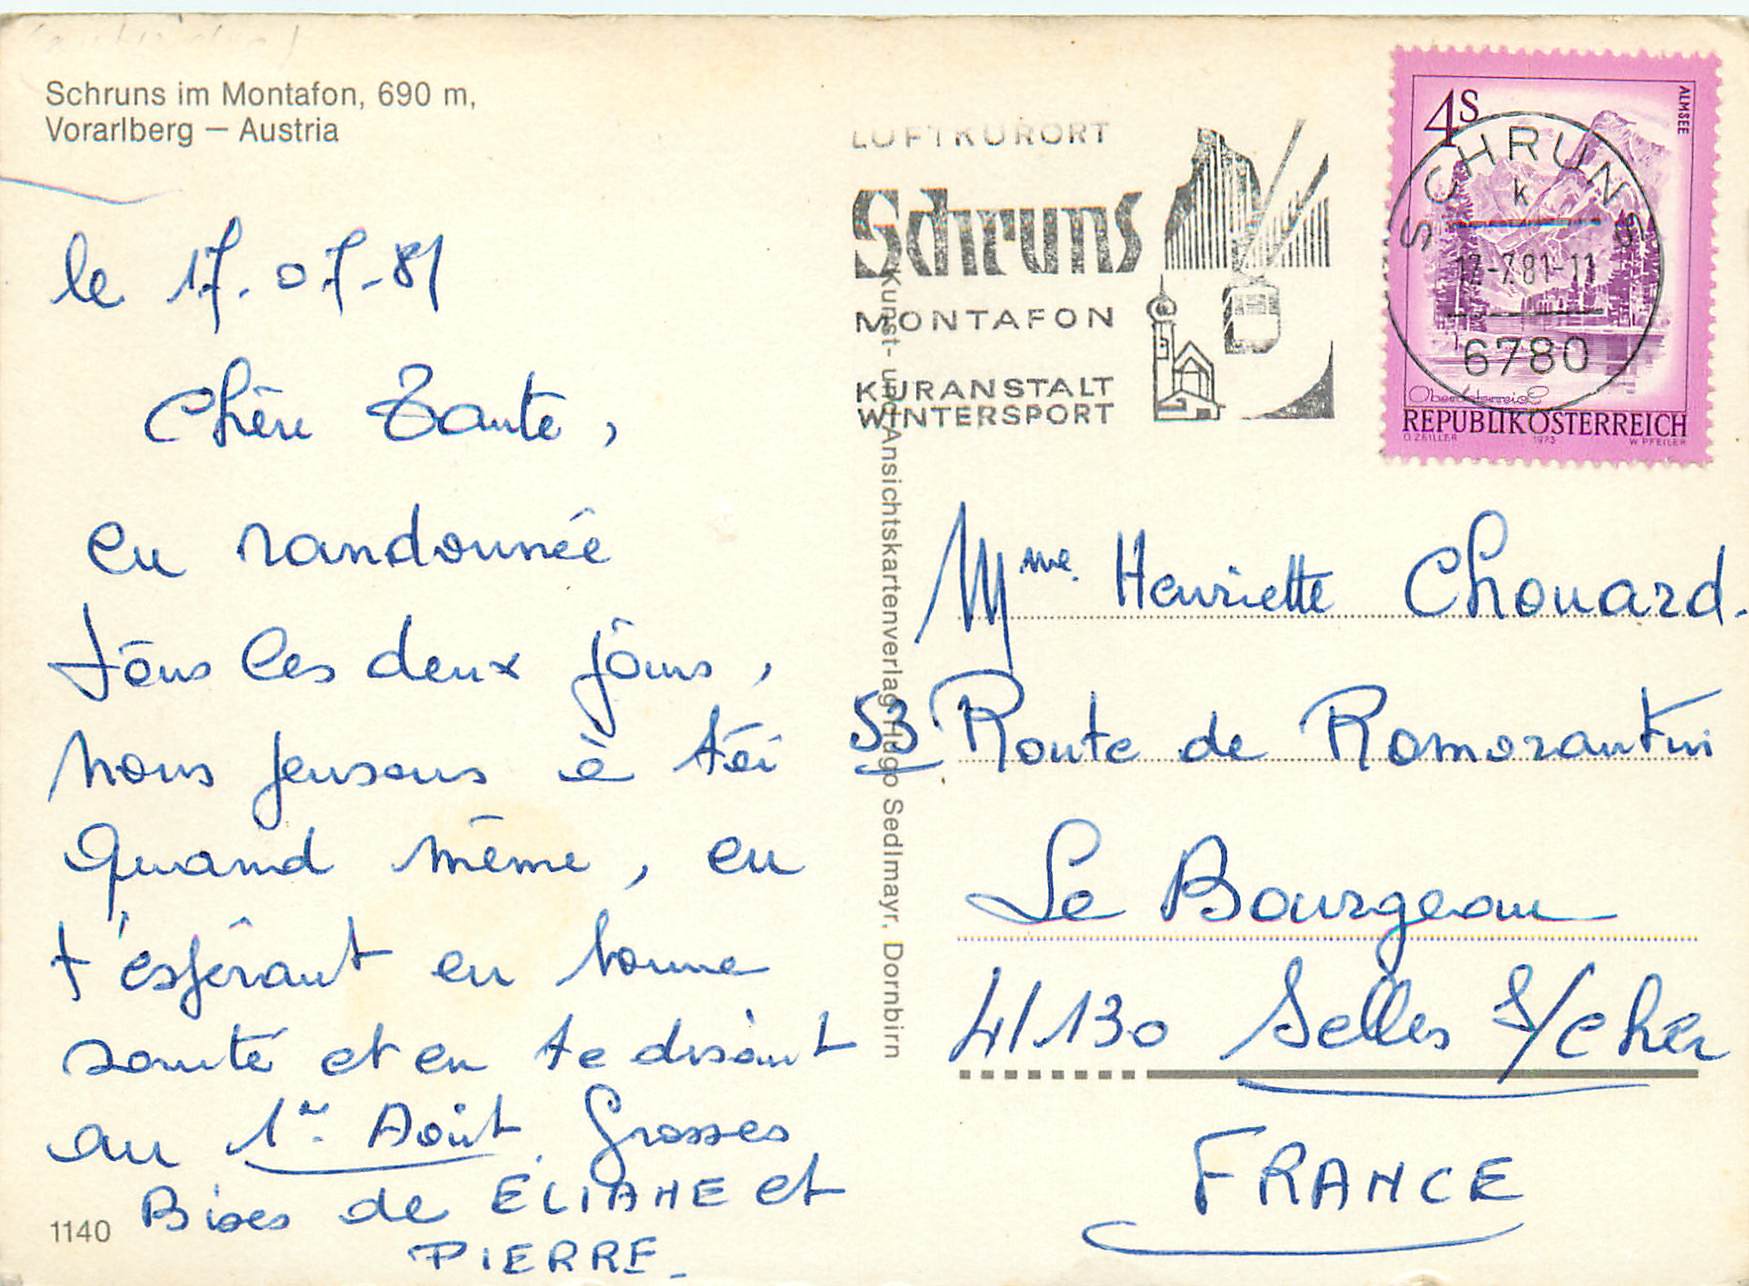 Schruns im Montafon, 690 m,
Vorarlberg — Austria
le 17.07-81
Chère Tante,
en randonnée
tous les deux jours,
nous pensons à toi
quand même, en
t'espérant en bonne
santé et en te disant
au 1er Août. Grosses
Bises de ELIANE et
PIERRE_
1140
Kunst- und Ansichtskartenverlag Hugo Sedlmayr, Dornbirn
LUFTKURORT
Schruns
MONTAFON
KURANSTALT
WINTERSPORT
4S
ALMSEE
SCHRUNS
k
17-7.81-11
6780
Oberösterreich
REPUBLIK ÖSTERREICH
O. ZEILLER 1973 W. PFEILER
Mme. Henriette Chouard.
53 Route de Romorantin
Le Bourgeau
41130 Selles S/Cher
FRANCE